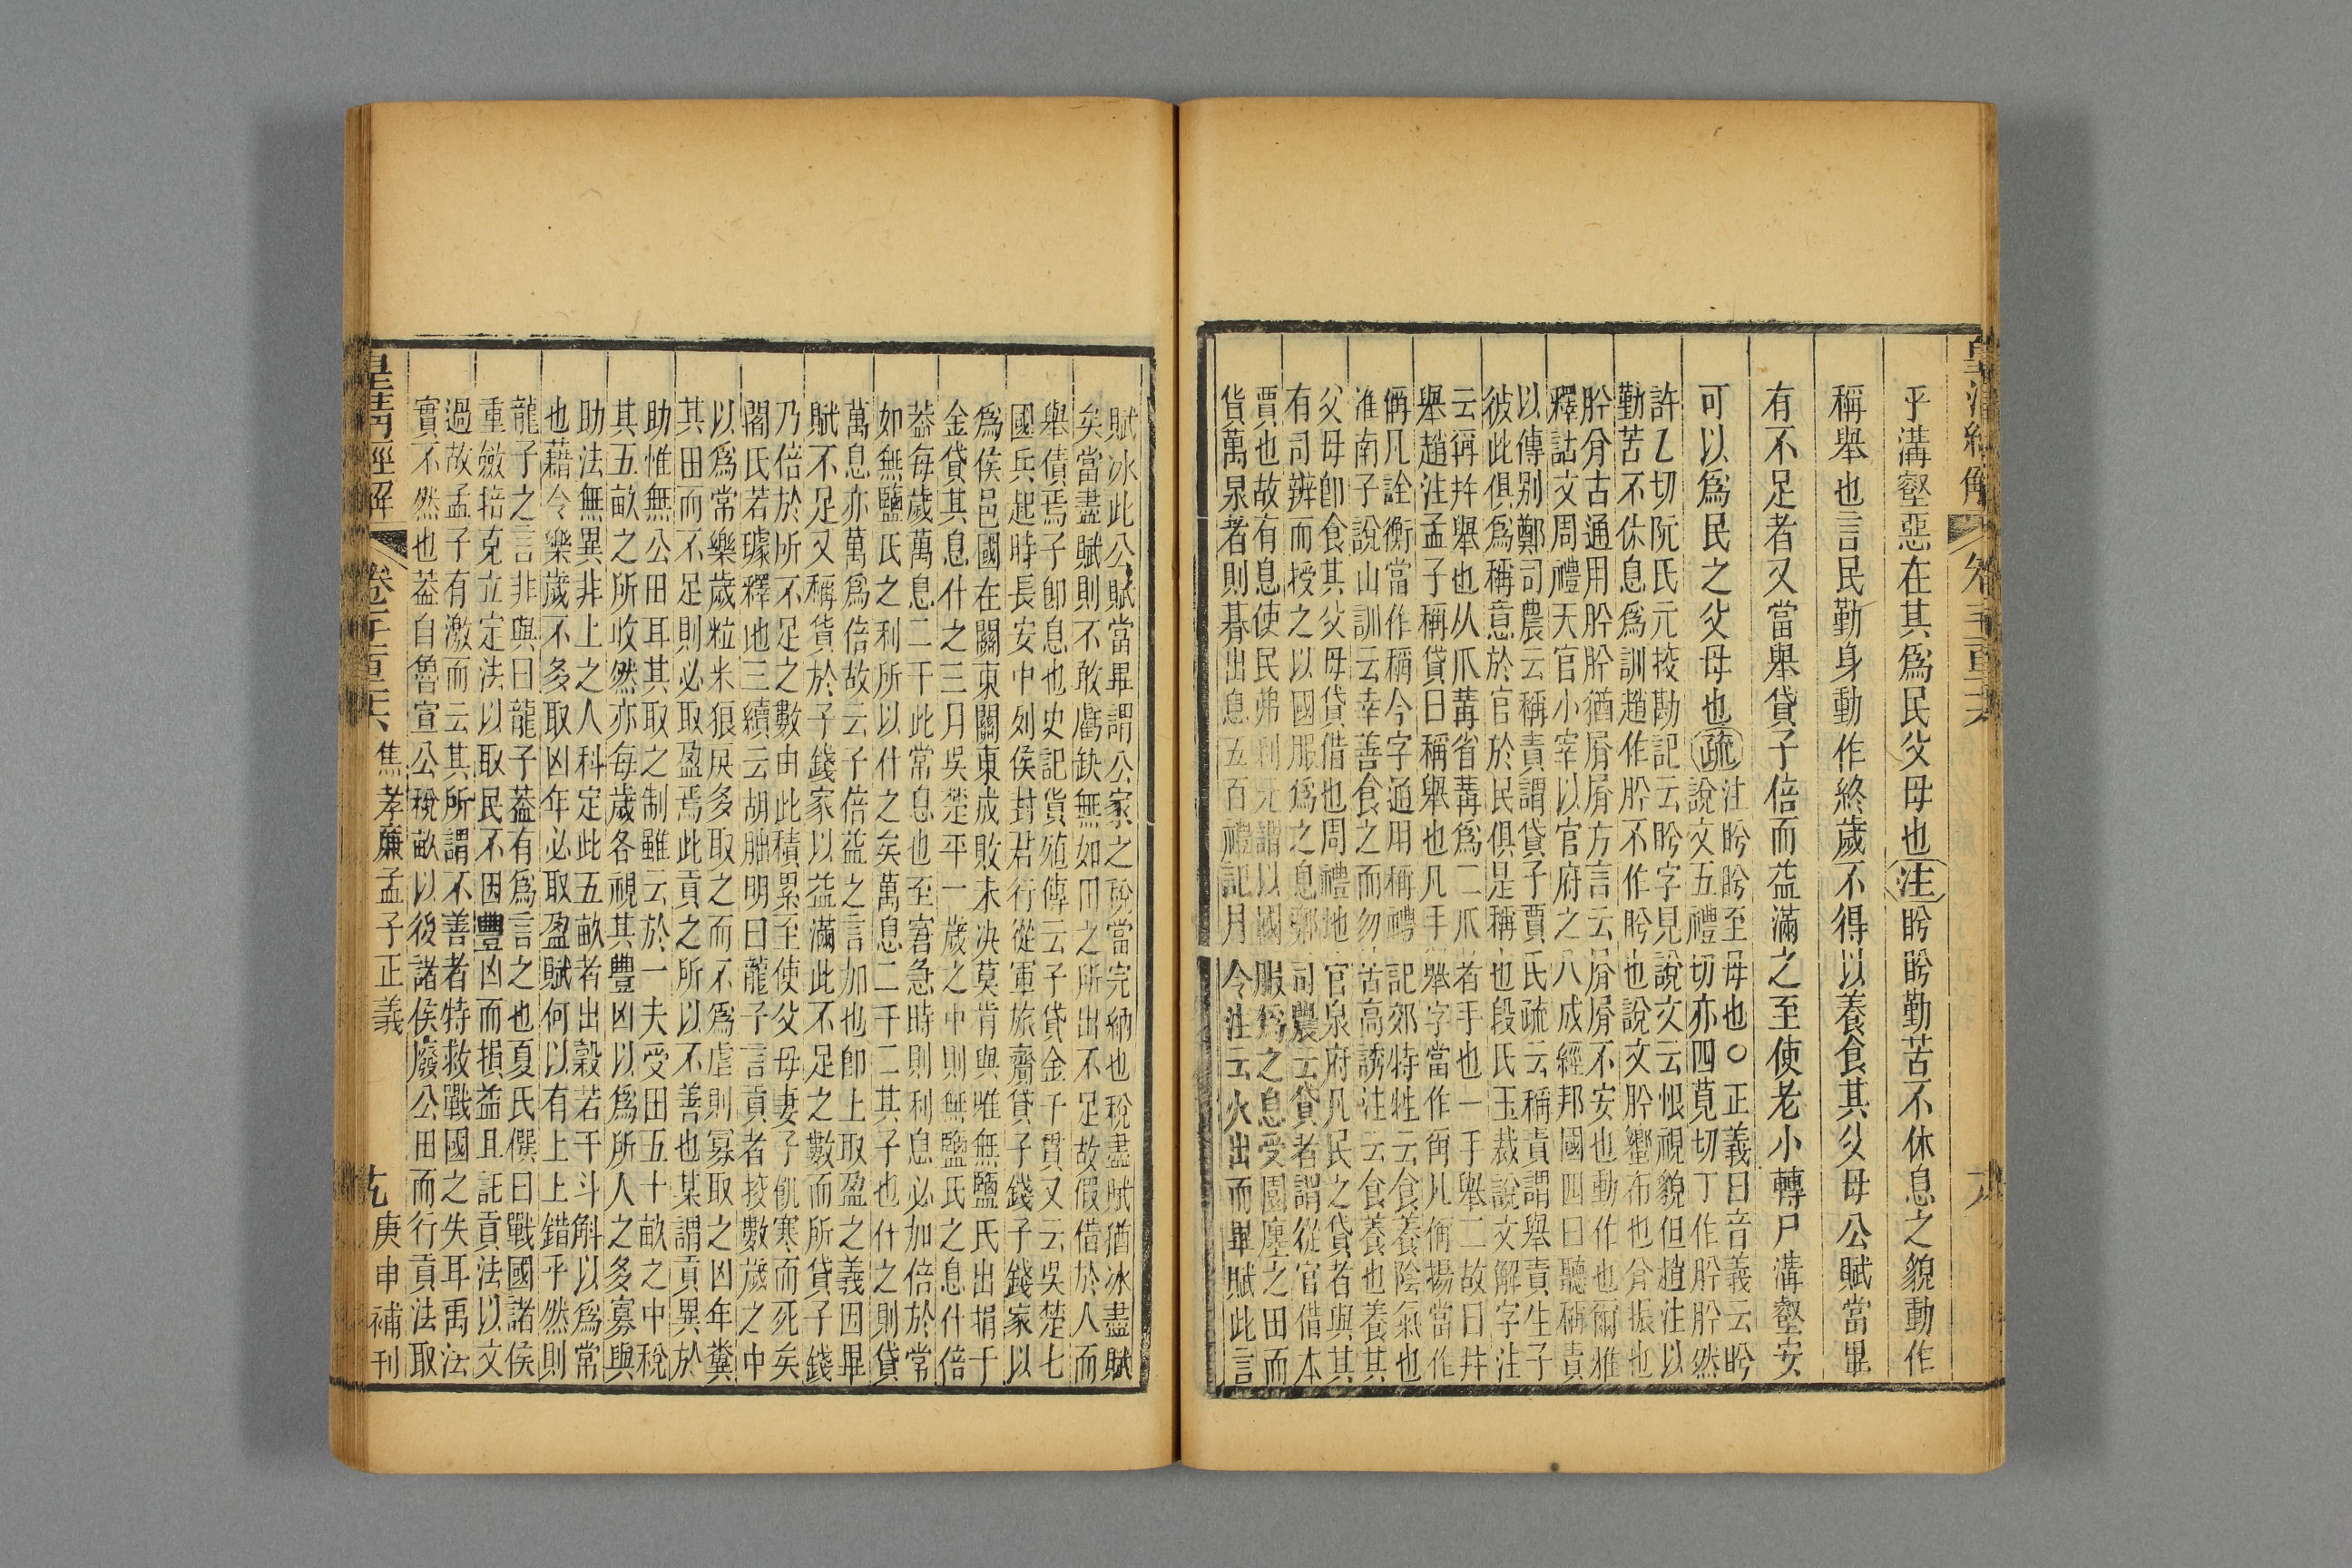 乎溝壑惡在其爲民父母也注盻盻勤苦不休息之貌動作
稱舉也言民勤身動作終歲不得以養食其父母公賦當畢
有不足者又當舉貸子倍而益滿之至使老小轉尸溝壑安
可以爲民之父母也疏
注盻盻至母也○正義曰音義云盻
說文五禮切亦四莧切丁作肸肸然
許乙切阮氏元挍勘記云盻字見說文云恨視貌但趙注以
勤苦不休息爲訓趙作肸不作盻也說文肸蠁布也㑞振也
肸㑞古通用肸肸猶屑屑方言云屑屑不安也動作也爾雅
釋詁文周禮天官小宰以官府之八成經邦國四曰聽稱責
以傳別鄭司農云稱責謂貸子賈氏疏云稱責謂舉責生子
彼此俱爲稱意於官於民俱是稱也段氏玉裁說文解字注
云稱幷舉也从爪冓省冓爲二爪者手也一手舉二故曰幷
舉趙注孟子稱貸曰稱舉也凡手舉字當作爯凡偁揚當作
偁凡詮衡當作稱今字通用稱禮記郊特牲云食養陰氣也
淮南子說山訓云幸善食之而勿苦高誘注云食養也養其
父母卽食其父母貸借也周禮地官泉府凡民之貸者與其
有司辨而授之以國服爲之息鄭司農云貸者謂從官借本
賈也故有息使民弗利 謂以國服爲之息受園廛之田而
貨萬泉者則朞出息五百禮記月令注云火出而畢賦此言
賦冰此公賦當畢謂公家之稅當完納也稅盡賦猶冰盡賦
矣當盡賦則不敢虧缺無如田之所出不足故假借於人而
舉債焉子卽息也史記貨殖傳云子貸金千貫又云吳楚七
國兵起時長安中列侯封君行從軍旅齎貸子錢子錢家以
爲侯邑國在關東關東成敗未決莫肯與唯無鹽氏出捐千
金貸其息什之三月吳楚平一歲之中則無鹽氏之息什倍
葢每歲萬息二千此常息也至窘急時則利息必加倍於常
如無鹽氏之利所以什之矣萬息二千二其子也什之則貸
萬息亦萬爲倍故云子倍益之言加也卽上取盈之義因畢
賦不足又稱貸於子錢家以益滿此不足之數而所貸子錢
乃倍於所不足之數由此積累至使父母妻子飢寒而死矣
閻氏若璩釋地三續云胡朏明曰龍子言貢者挍數歲之中
以爲常樂歲粒米狼戾多取之而不爲虐則寡取之凶年糞
其田而不足則必取盈焉此貢之所以不善也某謂貢異於
助惟無公田耳其取之制雖云於一夫受田五十畝之中稅
其五畝之所收然亦每歲各視其豐凶以爲所人之多寡與
助法無異非上之人科定此五畝者出穀若干斗斛以爲常
也藉令樂歲不多取凶年必取盈賦何以有上上錯乎然則
龍子之言非與曰龍子葢有爲言之也夏氏僎曰戰國諸侯
重斂掊克立定法以取民不因豐凶而損益且託貢法以文
過故孟子有激而云其所謂不善者特救戰國之失耳禹法
實不然也葢自魯宣公稅畝以後諸侯廢公田而行貢法取
焦孝廉孟子正義
庚申補刊